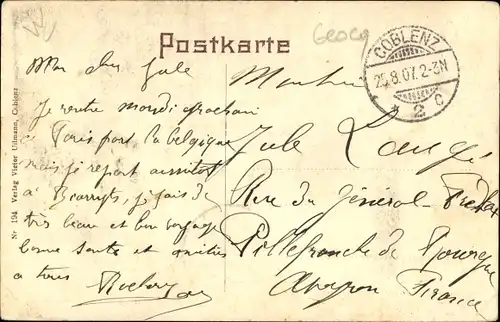 Postkarte
Georg
COBLENZ
25.8.07. 2-3N
* 2 c
Nr 194 Verlag Victor Ullmann, Coblenz
Mon cher Jule
Je rentre mardi prochain
a Paris part la belgique
mais je repart aussitot
a Biarryts, je fais un
très beau et bon voyage
bonne santé et amitiés
a tous
Monsieur
Jule
Rue du Général
Villefranche de Rouergue
Aveyron France